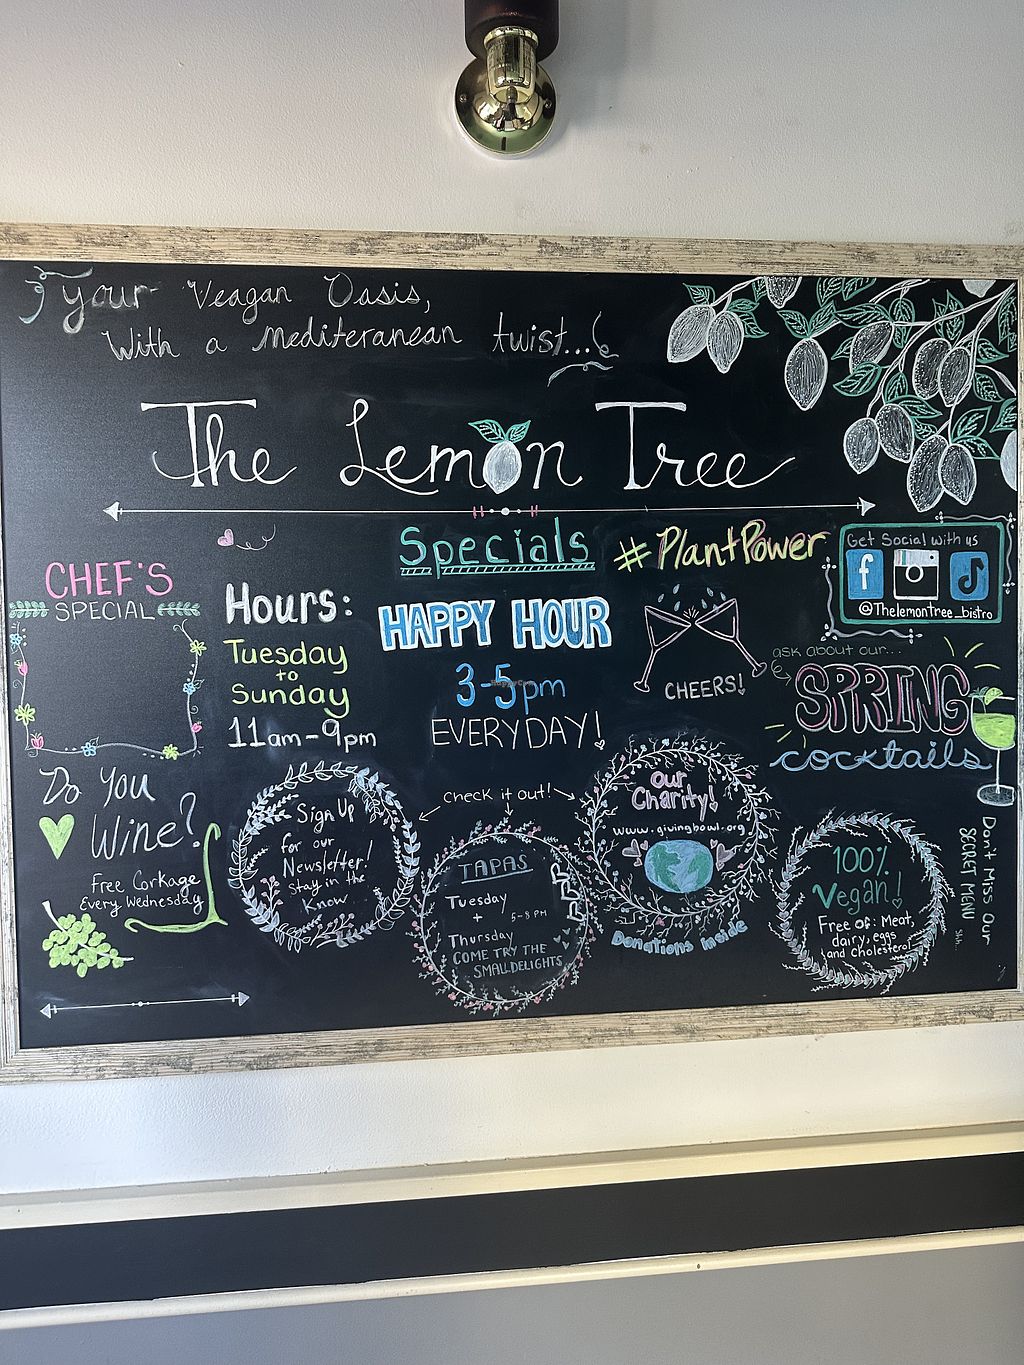 your Veagan Oasis,
With a mediteranean twist...
The Lemon Tree
CHEF'S
SPECIAL
Hours:
Tuesday
to
Sunday
11am-9pm
Specials
HAPPY HOUR
3-5pm
EVERYDAY!
#PlantPower
CHEERS!
Get Social with us
f
@Thelemontree_bistro
ask about our...
SPRING
cocktails
Do You
Wine?
Free Corkage
Every Wednesday
Sign Up
for our
Newsletter!
stay in the
Know
check it out!
TAPAS
Tuesday
+
5-8 PM
Thursday
COME TRY THE
SMALL DELIGHTS
our
Charity!
www.givingbowl.org
Donations inside
100%
Vegan!
Free of: Meat,
dairy, eggs
and cholesterol
Don't Miss Our
SECRET MENU